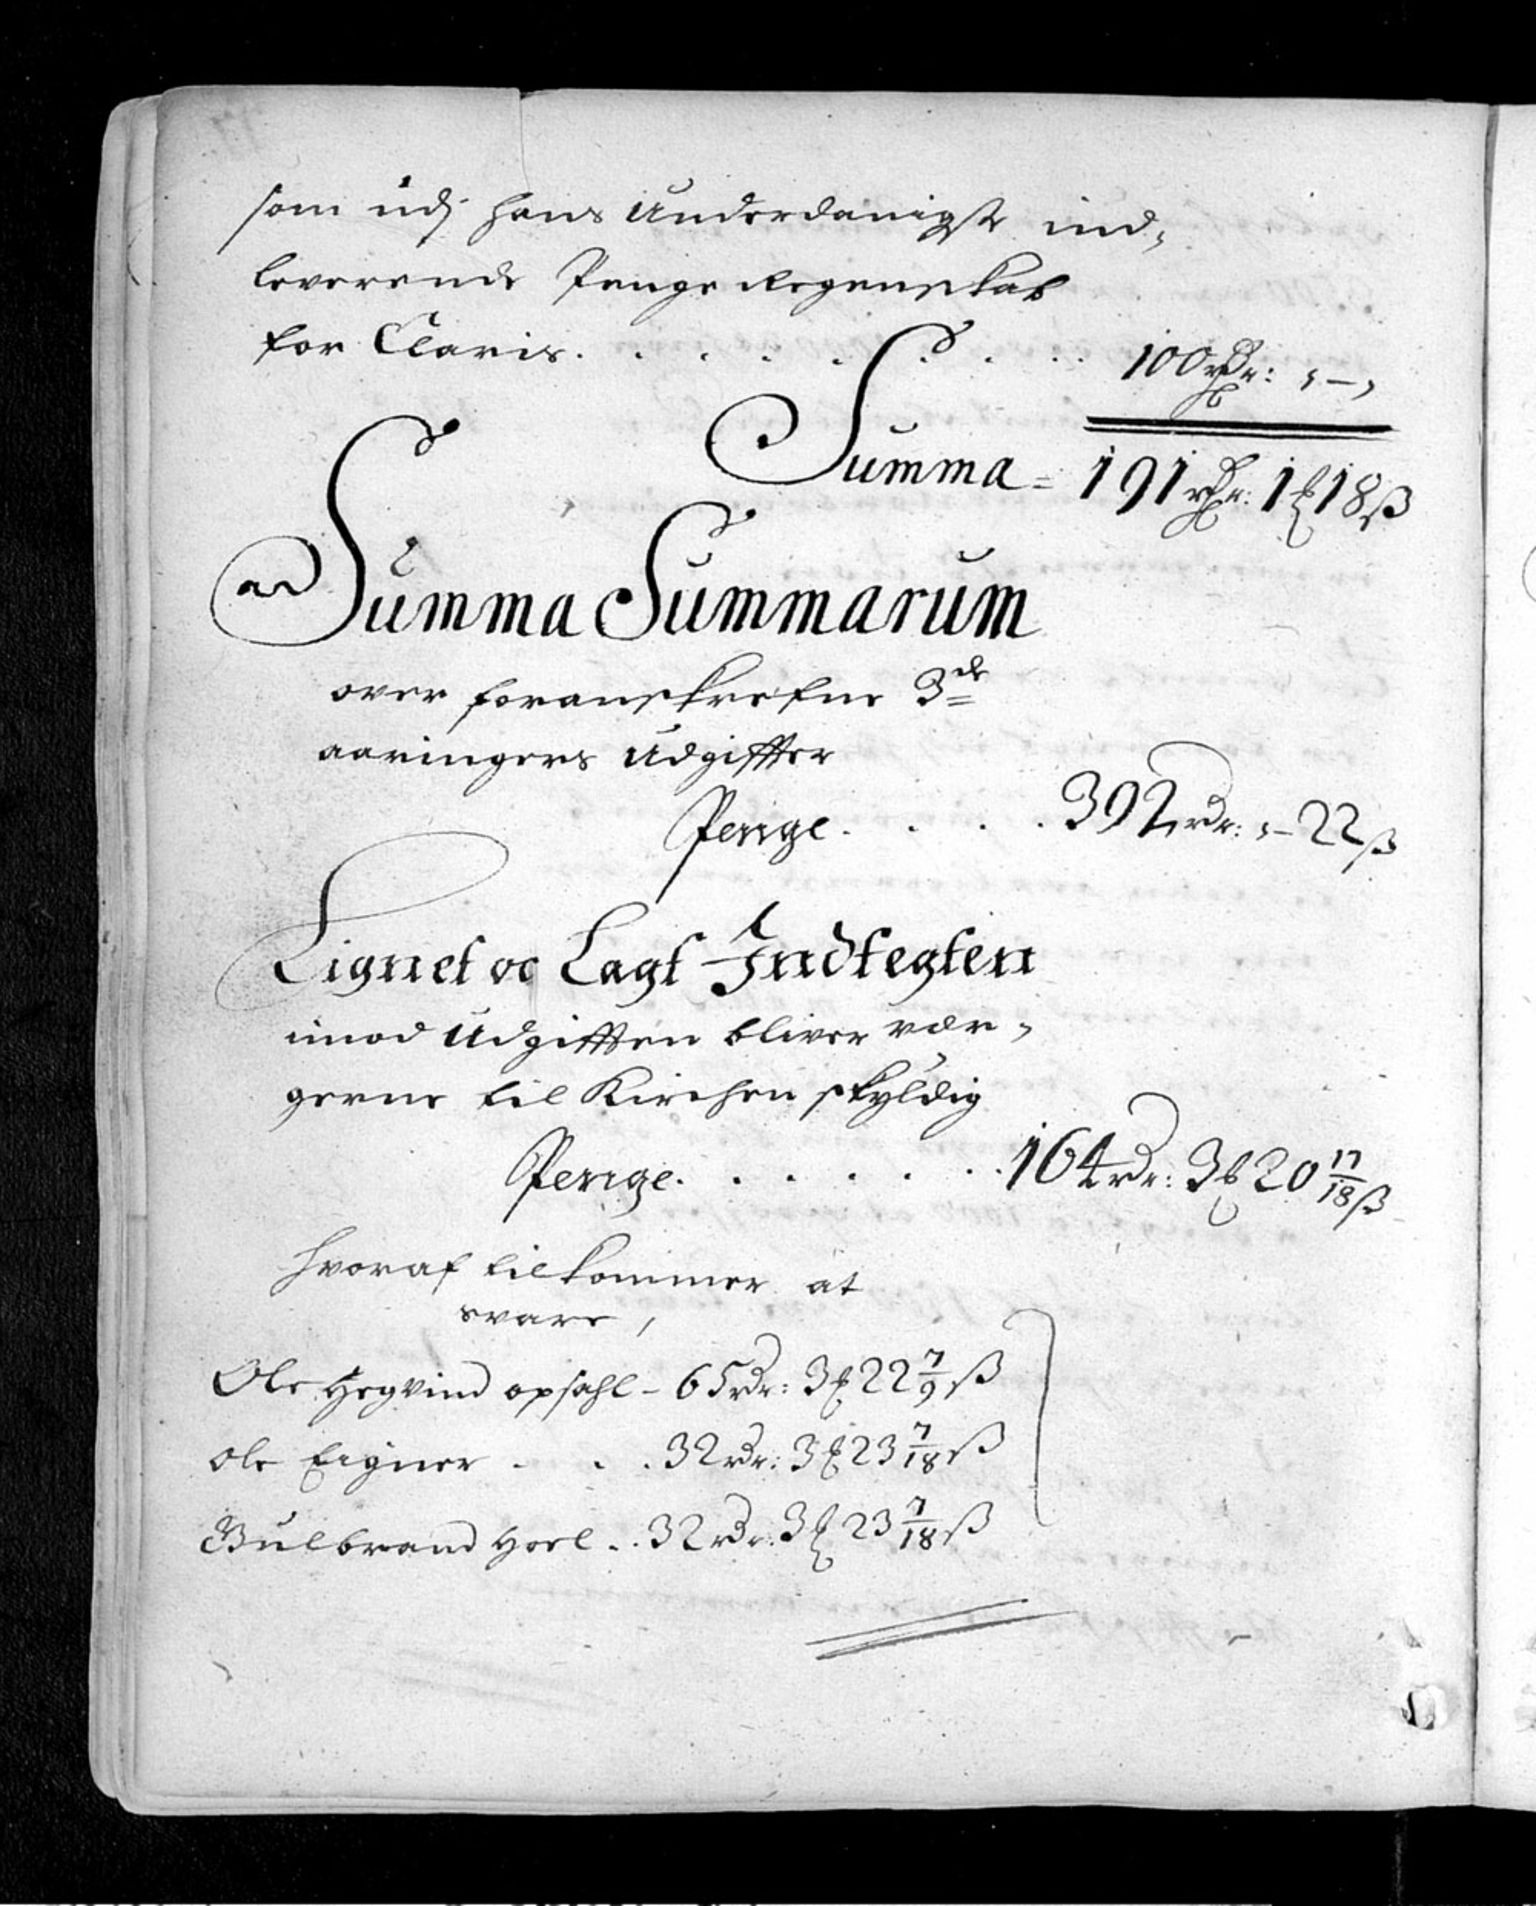 som udj hans Underdanigste ind,
leverende Penge Regenskab
for Claris. . . . . . . . . 100 rdr: , – ,
Summa = 191 rdr: 1 ℔ 18 ß
Summa Summarum
over foranskrefne 3de
aaringers Udgiffter
Penge . . . . 392 rdr: , – 22 ß
Lignet oc Lagt Indtegten
imod Udgifften bliver vær,
gerne til Kirchen skyldig
Penge. . . . . . . 164 rdr: 3 ℔ 20 17/18 ß
hvoraf tilkommer at
svare,
Ole Hegvind opsahl – 65 rdr: 3 ℔ 22 7/9 ß
ole Eigner . . . 32 rdr: 3 ℔ 23 7/18 ß
Gulbrand Hoel . . 32 rdr: 3 ℔ 23 7/18 ß